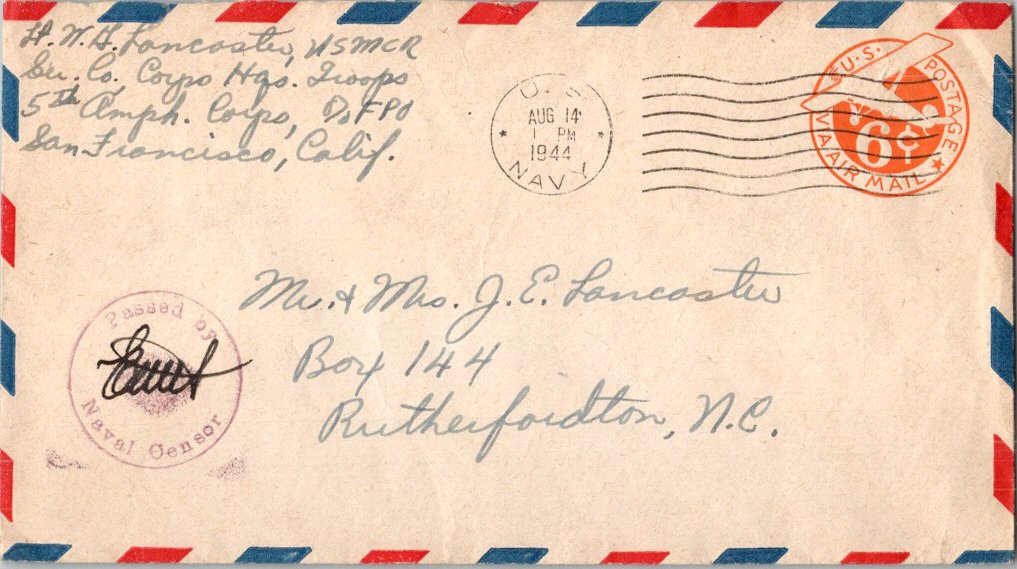 Lt. W. G. Lancaster, USMCR
Su. Co. Corps Hqs. Troops
5th Amph. Corps, % FPO
San Francisco, Calif.
U. S.
AUG 14
1 PM
1944
NAVY
U.S. POSTAGE
6¢
VIA AIR MAIL
Mr. & Mrs. J. E. Lancaster
Box 144
Rutherfordton, N.C.
Passed by
Naval Censor